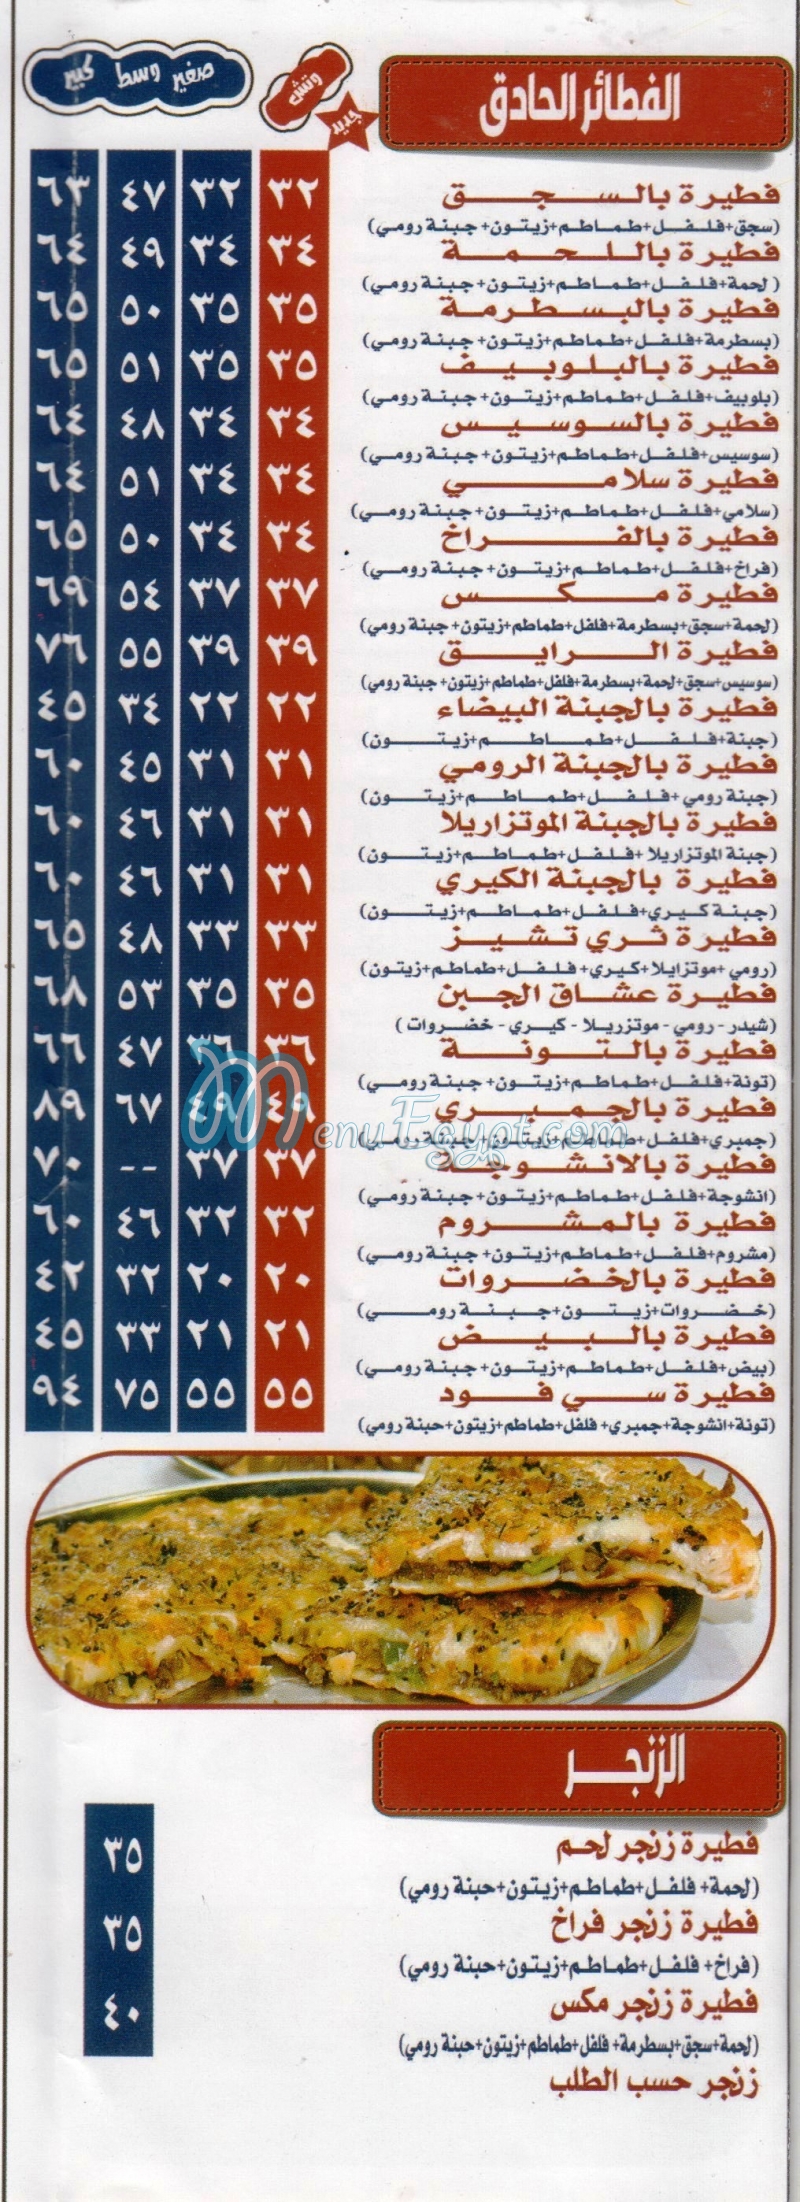 الفطائر الحادق
وتش صغير وسط كبير
جديد
فطيرة بالسجق ٣٢ ٣٢ ٤٧ ٦٣
(سجق+فلفل+طماطم+زيتون+جبنة رومي)
فطيرة باللحمة ٣٤ ٣٤ ٤٩ ٦٤
(لحمة+فلفل+طماطم+زيتون+ جبنة رومي)
فطيرة بالبسطرمة ٣٥ ٣٥ ٥٠ ٦٥
(بسطرمة+فلفل+طماطم+زيتون+ جبنة رومي)
فطيرة بالبلوبيف ٣٥ ٣٥ ٥١ ٦٥
(بلوبيف+فلفل+طماطم+زيتون+ جبنة رومي)
فطيرة بالسوسيس ٣٤ ٣٤ ٤٨ ٦٤
(سوسيس+فلفل+طماطم+زيتون+ جبنة رومي)
فطيرة سلامي ٣٤ ٣٤ ٥١ ٦٤
(سلامي+فلفل+طماطم+زيتون+ جبنة رومي)
فطيرة بالفراخ ٣٤ ٣٤ ٥٠ ٦٥
(فراخ+فلفل+طماطم+زيتون+ جبنة رومي)
فطيرة مكس ٣٧ ٣٧ ٥٤ ٦٩
(لحمة+سجق+بسطرمة+فلفل+طماطم+زيتون+ جبنة رومي)
فطيرة الرايق ٣٩ ٣٩ ٥٥ ٧٦
(سوسيس+سجق+لحمة+بسطرمة+فلفل+طماطم+زيتون+ جبنة رومي)
فطيرة بالجبنة البيضاء ٢٢ ٢٢ ٣٤ ٤٥
(جبنة+فلفل+طماطم+زيتون)
فطيرة بالجبنة الرومي ٣١ ٣١ ٤٥ ٦٠
(جبنة رومي+فلفل+طماطم+زيتون)
فطيرة بالجبنة الموتزاريلا ٣١ ٣١ ٤٦ ٦٠
(جبنة الموتزاريلا +فلفل+طماطم+زيتون)
فطيرة بالجبنة الكيري ٣١ ٣١ ٤٦ ٦٠
(جبنة كيري+فلفل+طماطم+زيتون)
فطيرة ثري تشيز ٣٣ ٣٣ ٤٨ ٦٥
(رومي +موتزايلا+كيري+ فلفل+طماطم+زيتون)
فطيرة عشاق الجبن ٣٥ ٣٥ ٥٣ ٦٨
(شيدر - رومي - موتزريلا - كيري - خضروات )
فطيرة بالتونة ٣٦ ٣٦ ٤٧ ٦٦
(تونة+فلفل+طماطم+زيتون+ جبنة رومي)
فطيرة بالجمبري ٤٩ ٤٩ ٦٧ ٨٩
(جمبري+فلفل+طماطم+زيتون+ جبنة رومي)
MenuEgypt.com
فطيرة بالانشوجة ٣٧ ٣٧ -- ٧٠
(انشوجة+فلفل+طماطم+زيتون+ جبنة رومي)
فطيرة بالمشروم ٣٢ ٣٢ ٤٦ ٦٠
(مشروم+فلفل+طماطم+زيتون+ جبنة رومي)
فطيرة بالخضروات ٢٠ ٢٠ ٣٢ ٤٢
(خضروات+زيتون+جبنة رومي)
فطيرة بالبيض ٢١ ٢١ ٣٣ ٤٥
(بيض+فلفل+طماطم+زيتون+ جبنة رومي)
فطيرة سي فود ٥٥ ٥٥ ٧٥ ٩٤
(تونة+انشوجة+جمبري+ فلفل+طماطم+زيتون+حبنة رومي)
الزنجر
فطيرة زنجر لحم ٣٥
(لحمة+ فلفل+طماطم+زيتون+حبنة رومي)
فطيرة زنجر فراخ ٣٥
(فراخ+ فلفل+طماطم+زيتون+حبنة رومي)
فطيرة زنجر مكس ٤٠
(لحمة+سجق+بسطرمة+ فلفل+طماطم+زيتون+حبنة رومي)
زنجر حسب الطلب